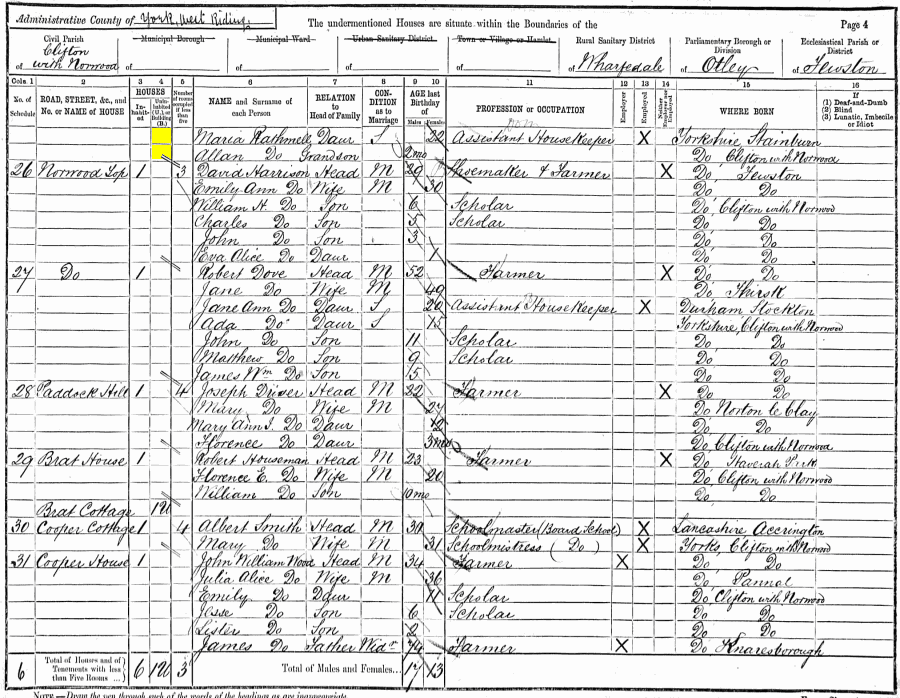 Administrative County of York, West Riding
The undermentioned Houses are situate within the Boundaries of the
Page 4
Civil Parish of Clifton with Norwood
Municipal Borough of
Municipal Ward of
Urban Sanitary District of
Town or Village or Hamlet of
Rural Sanitary District of Wharfedale
Parliamentary Borough or Division of Otley
Ecclesiastical Parish or District of Fewston
Cols. 1 2 3 4 5 6 7 8 9 10 11 12 13 14 15 16
No. of Schedule
ROAD, STREET, &c., and No. or NAME of HOUSE
HOUSES
Inhabited
Uninhabited (U.), or Building (B.)
Number of rooms occupied if less than five
NAME and Surname of each Person
RELATION to Head of Family
CONDITION as to Marriage
AGE last Birthday of
Males Females
PROFESSION or OCCUPATION
Employer
Employed
Neither
WHERE BORN
If (1) Deaf-and-Dumb (2) Blind (3) Lunatic, Imbecile or Idiot
Maria Rathmell Daur S 22 Assistant Housekeeper X Yorkshire Stainburn
Allan Do Grandson 2mo Do Clifton with Norwood
26 Norwood Top 1 3 David Harrison Head M 29 Shoemaker & Farmer X Do Fewston
Emily Ann Do Wife M 30 Do Do
William H. Do Son 6 Scholar Do Clifton with Norwood
Charles Do Son 5 Scholar Do Do
John Do Son 3 Do Do
Eva Alice Do Daur 1 Do Do
27 Do 1 Robert Dove Head M 52 Farmer X Do Do
Jane Do Wife M 49 Do Thirsk
Jane Ann Do Daur S 20 Assistant Housekeeper X Durham Stockton
Ada Do Daur S 15 Yorkshire, Clifton with Norwood
John Do Son 11 Scholar Do Do
Matthew Do Son 9 Scholar Do Do
James Wm Do Son 5 Do Do
28 Paddock Hill 1 4 Joseph Driver Head M 22 Farmer X Do Do
Do Wife M 27 Do Norton le Clay
Mary Ann Do Daur Do Do
Florence Do Daur 3mo Do Clifton with Norwood
29 Brat House 1 Robert Houseman Head M 23 Farmer X Do Haverah Park
Florence E. Do Wife M 20 Do Clifton with Norwood
William Do Son 10mo Do Do
Brat Cottage 1U
30 Cooper Cottage 1 4 Albert Smith Head M 30 Schoolmaster (Board School) X Lancashire Accrington
Mary Do Wife M 31 Schoolmistress ( Do ) X Yorks, Clifton Norwood
31 Cooper House 1 John William Wood Head M 34 Farmer X Do Do
Julia Alice Do Wife M 36 Do Pannal
Emily Do Daur 11 Scholar Do Clifton with Norwood
Jesse Do Son 6 Scholar Do Do
Lister Do Son 2 Do Do
James Do Father Widr 74 Farmer X Do Knaresborough
6 Total of Houses and of Tenements with less than Five Rooms ... 6 1U 3 Total of Males and Females... 17 13
NOTE.—Draw the pen through such of the words of the headings as are inappropriate.